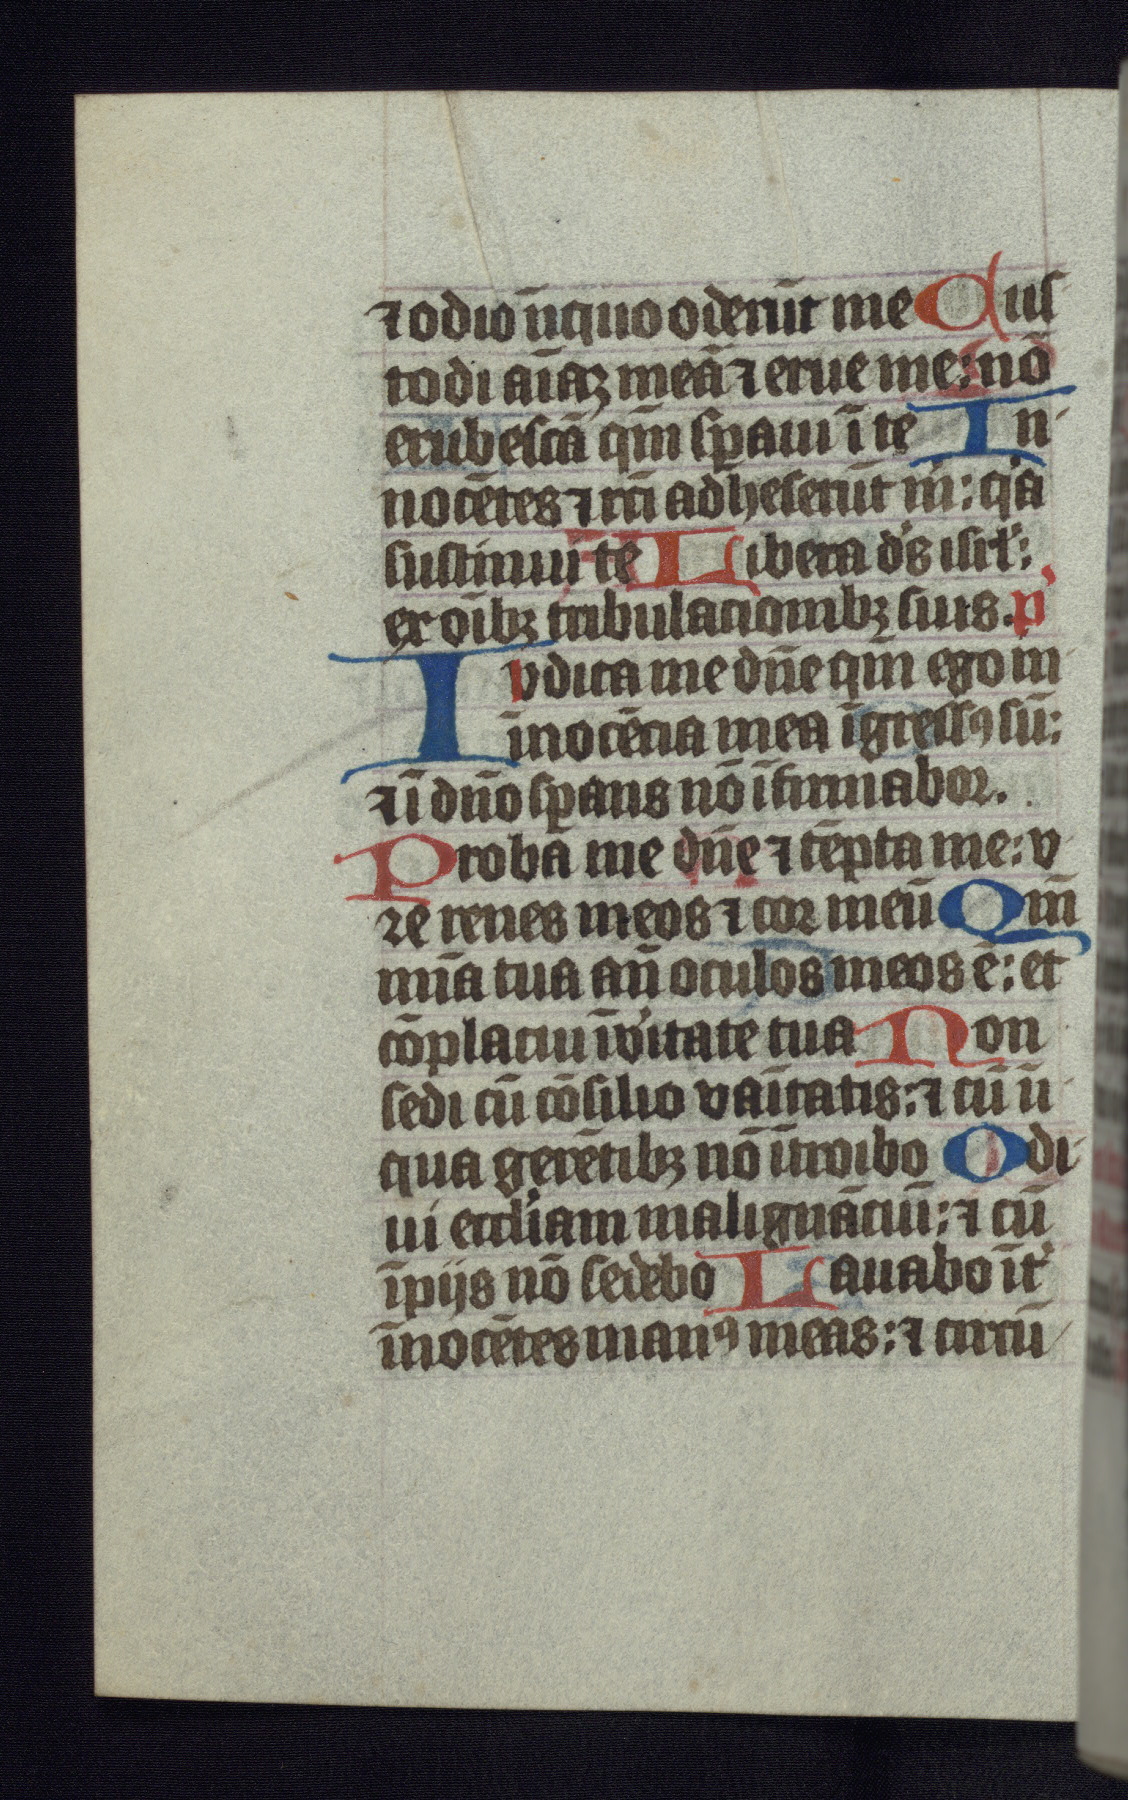 ⁊ odio īiquo oderūt me Cus
todi aīaꝫ meā ⁊ erue me: nō
erubescā qm̄ sꝑaui ī te In
nocētes ⁊ rcī adheserūt m̄: q'a
sustinui te Libera d's isrl':
ex oībꝫ tribulacionibꝫ suis. p'
Iudica me dn̄e qm̄ ego in
īnocēcia mea īgressꝰ sū:
⁊ ī dn̄o sꝑans nō īfirmabor.
Proba me dn̄e ⁊ tēpta me: v
re renes meos ⁊ cor meū Qm̄
mīa tua an̄ oculos meos ē: et
cōplacui ī v'itate tua Non
sedi cū cōsilio vaītatis: ⁊ cū ī
iqua gerētibꝫ nō ītroibo Odi
ui eccl'iam malignāciū: ⁊ cū
īpijs nō sedebo Lauabo īt'
īnocētes manꝰ meas: ⁊ circū